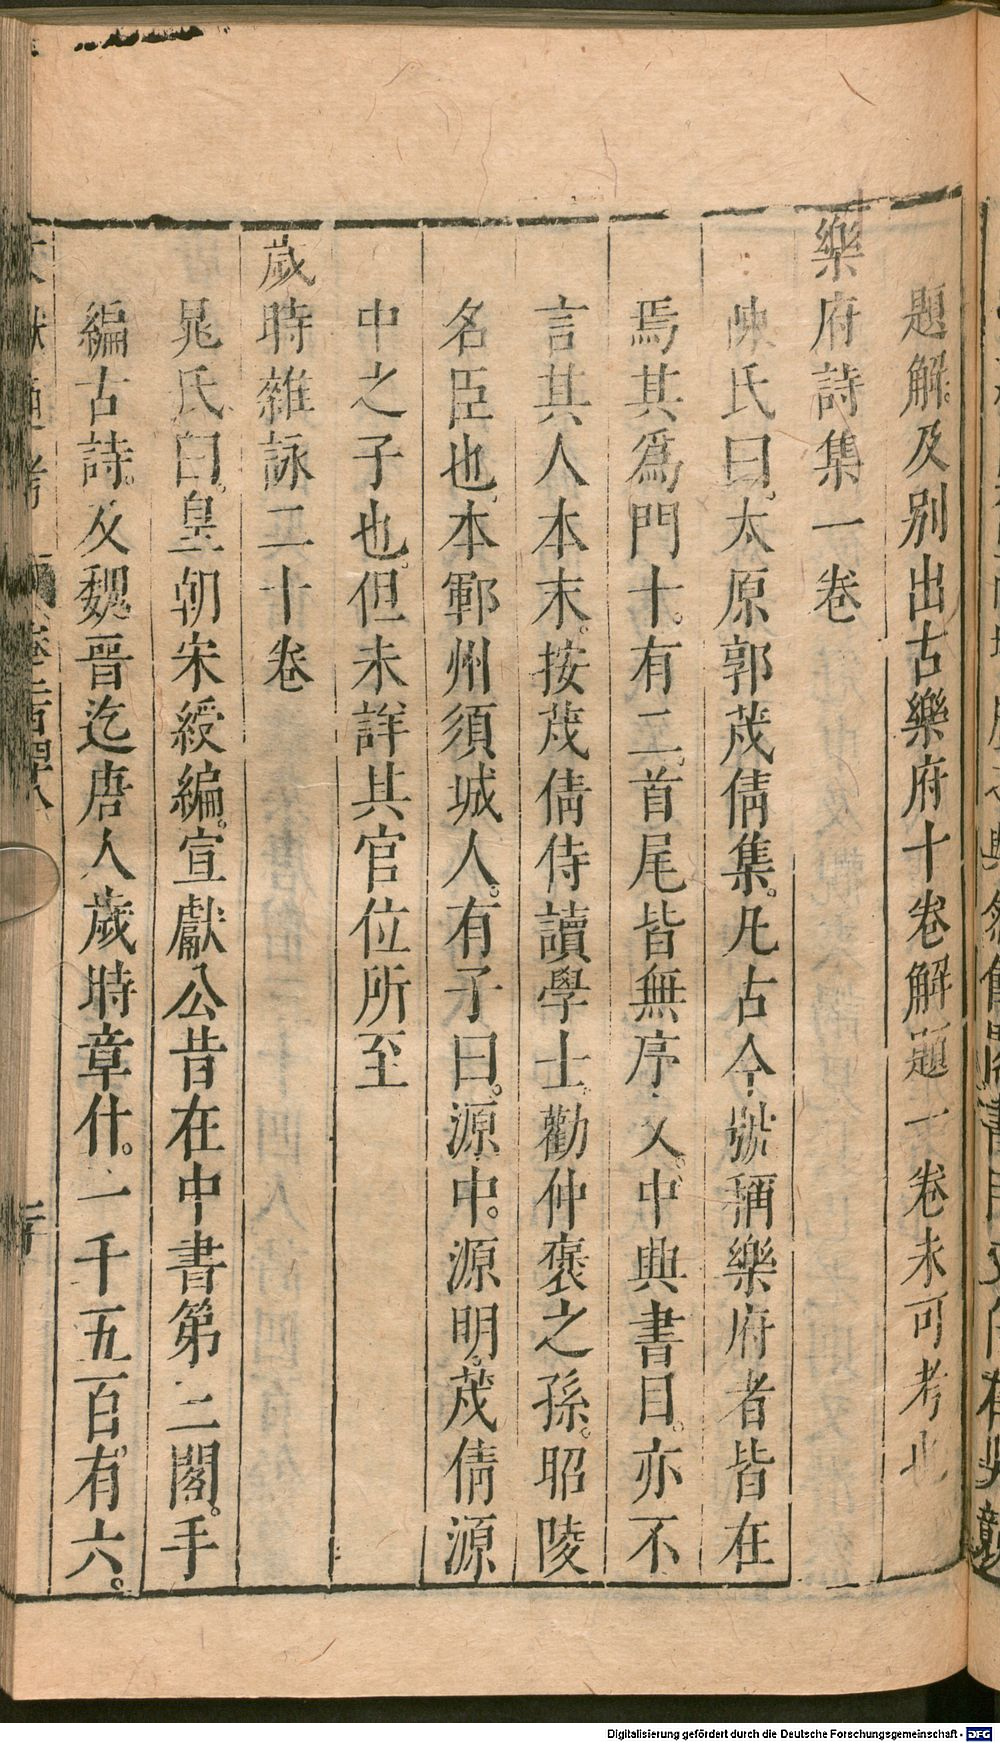 題解及別出古樂府十卷解題一卷未可考也
樂府詩集一卷
陳氏曰太原郭茂倩集凡古今號稱樂府者皆在
焉其爲門十有二首尾皆無序文中興書目亦不
言其人本末按茂倩侍讀學士勸仲褒之孫昭陵
名臣也本鄆州須城人有子曰源中源明茂倩源
中之子也但未詳其官位所至
歲時雜詠二十卷
晁氏曰皇朝宋綬編宣獻公昔在中書第二閣手
編古詩及魏晉迄唐人歲時章什一千五百有六
Digitalisierung gefördert durch die Deutsche Forschungsgemeinschaft - DFG